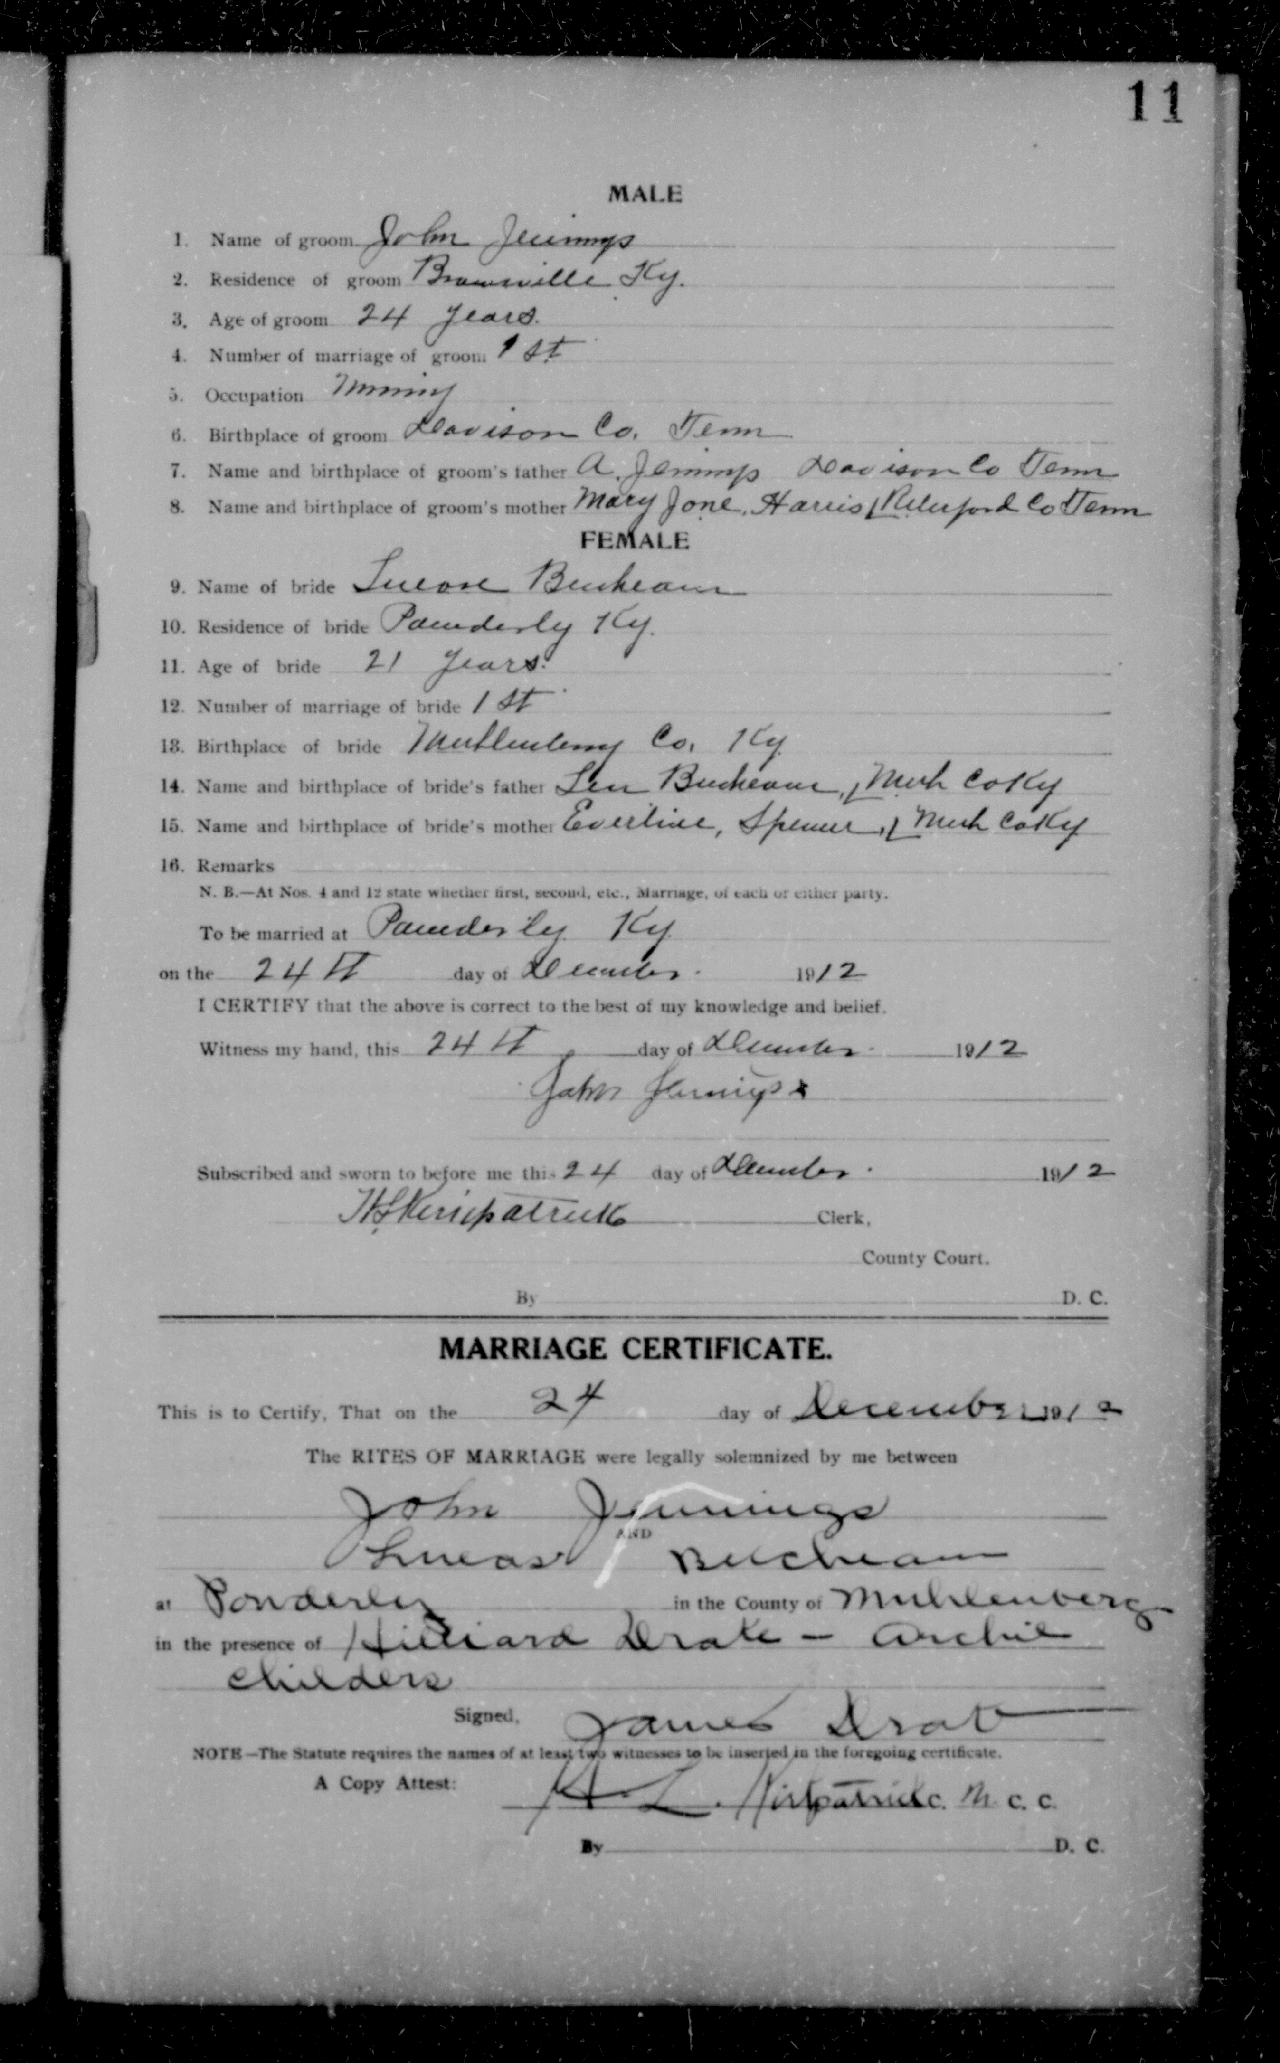 11
MALE
1. Name of groom John Jennings
2. Residence of groom Brownville Ky.
3. Age of groom 24 years.
4. Number of marriage of groom 1 st
5. Occupation Mining
6. Birthplace of groom Davison Co. Tenn
7. Name and birthplace of groom's father A. Jennings Davison Co Tenn
8. Name and birthplace of groom's mother Mary Jane, Harris Co Tenn
FEMALE
9. Name of bride
10. Residence of bride Ky.
11. Age of bride 21 years.
12. Number of marriage of bride 1 st
13. Birthplace of bride Muhlenberg Co. Ky
14. Name and birthplace of bride's father Muh Co Ky
15. Name and birthplace of bride's mother Everline, Spencer, Muh Co Ky
16. Remarks
N. B.—At Nos. 4 and 12 state whether first, second, etc., Marriage, of each or either party.
To be married at Ky
on the 24th day of December 1912
I CERTIFY that the above is correct to the best of my knowledge and belief.
Witness my hand, this 24th day of December 1912
John Jennings
Subscribed and sworn to before me this 24 day of December 1912
H L Kirkpatrick Clerk,
County Court.
By D. C.
MARRIAGE CERTIFICATE.
This is to Certify, That on the 24 day of December 1912
The RITES OF MARRIAGE were legally solemnized by me between
John Jennings
AND
at Ponderly in the County of Muhlenberg
in the presence of Hilliard Drake - Archie
Childers
Signed, James
NOTE—The Statute requires the names of at least two witnesses to be inserted in the foregoing certificate.
A Copy Attest: H. L. Kirkpatrick C. M. C. C.
By D. C.